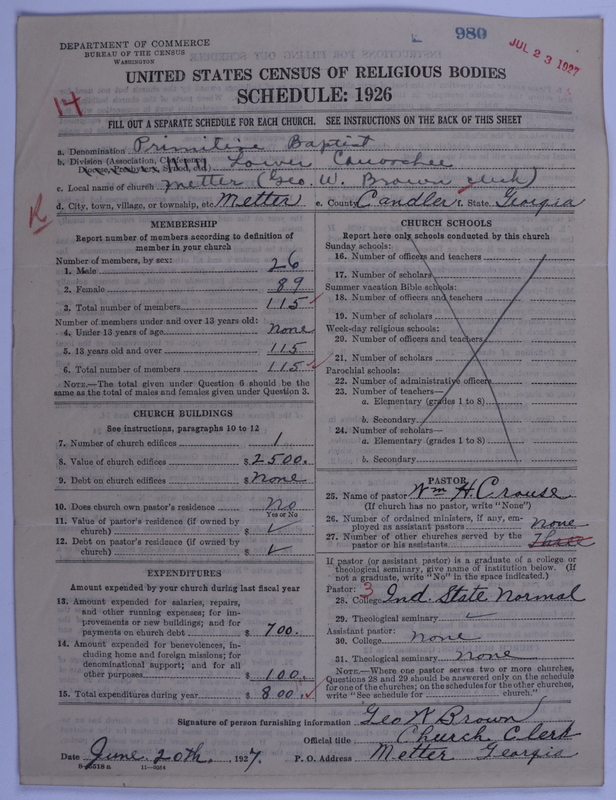 DEPARTMENT OF COMMERCE
BUREAU OF THE CENSUS
WASHINGTON
980
JUL 23 1927
UNITED STATES CENSUS OF RELIGIOUS BODIES
SCHEDULE: 1926
14
FILL OUT A SEPARATE SCHEDULE FOR EACH CHURCH. SEE INSTRUCTIONS ON THE BACK OF THIS SHEET
a. Denomination Primitive Baptist
b. Division (Association, Conference, Diocese, Presbytery, Synod, etc.) Lower Canoochee
c. Local name of church Metter (Geo. W. Brown clerk)
d. City, town, village, or township, etc. Metter e. County Candler f. State Georgia
MEMBERSHIP
Report number of members according to definition of
member in your church
Number of members, by sex:
1. Male 26
2. Female 89
3. Total number of members 115
Number of members under and over 13 years old:
4. Under 13 years of age None
5. 13 years old and over 115
6. Total number of members 115
NOTE.—The total given under Question 6 should be the
same as the total of males and females given under Question 3.
CHURCH BUILDINGS
See instructions, paragraphs 10 to 12
7. Number of church edifices 1
8. Value of church edifices $2500.
9. Debt on church edifices $None
10. Does church own pastor's residence No
Yes or No
11. Value of pastor's residence (if owned by
church) $
12. Debt on pastor's residence (if owned by
church) $
EXPENDITURES
Amount expended by your church during last fiscal year
13. Amount expended for salaries, repairs,
and other running expenses; for im-
provements or new buildings; and for
payments on church debt $ 700.
14. Amount expended for benevolences, in-
cluding home and foreign missions; for
denominational support; and for all
other purposes $ 100.
15. Total expenditures during year $ 800.
CHURCH SCHOOLS
Report here only schools conducted by this church
Sunday schools:
16. Number of officers and teachers
17. Number of scholars
Summer vacation Bible schools:
18. Number of officers and teachers
19. Number of scholars
Week-day religious schools:
20. Number of officers and teachers
21. Number of scholars
Parochial schools:
22. Number of administrative officers
23. Number of teachers—
a. Elementary (grades 1 to 8)
b. Secondary
24. Number of scholars—
a. Elementary (grades 1 to 8)
b. Secondary
PASTOR
25. Name of pastor Wm H. Crouse
(If church has no pastor, write "None")
26. Number of ordained ministers, if any, em-
ployed as assistant pastors None
27. Number of other churches served by the
pastor or his assistants Three
If pastor (or assistant pastor) is a graduate of a college or
theological seminary, give name of institution below. (If
not a graduate, write "No" in the space indicated.)
Pastor: 3
28. College Ind. State Normal
29. Theological seminary
Assistant pastor:
30. College None
31. Theological seminary None
NOTE.—Where one pastor serves two or more churches,
Questions 28 and 29 should be answered only on the schedule
for one of the churches; on the schedules for the other churches,
write "See schedule for church."
Signature of person furnishing information Geo W Brown
Official title Church Clerk
Date June 20th, 1927. P. O. Address Metter Georgia